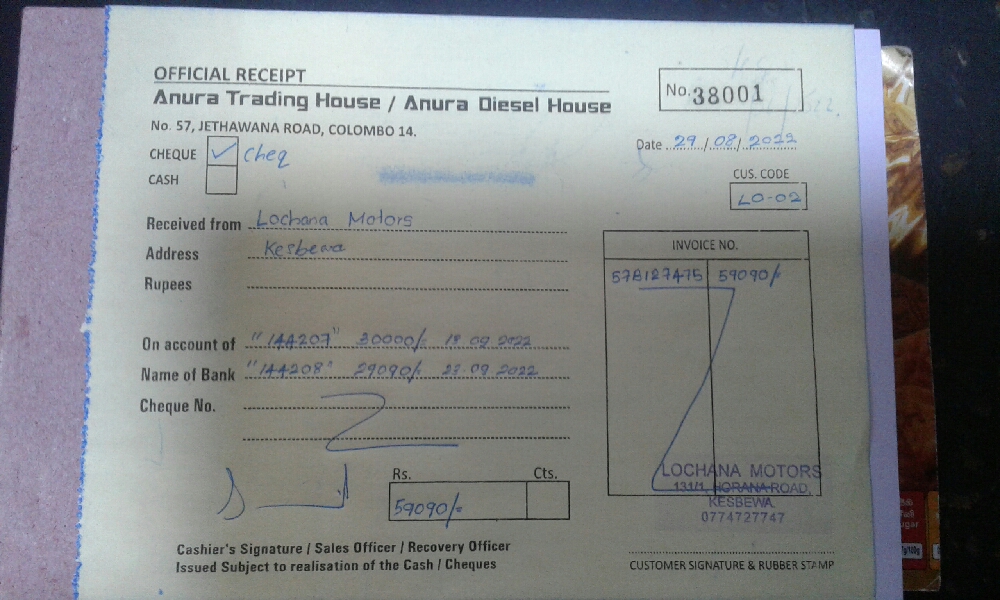 OFFICIAL RECEIPT
Anura Trading House / Anura Diesel House
No. 38001
No. 57, JETHAWANA ROAD, COLOMBO 14.
Date 29/08/2022
CHEQUE ✓ cheq
CASH
CUS. CODE
LO-02
Received from Lochana Motors
Address Kesbewa
Rupees
INVOICE NO.
57B127475 59090/-
On account of "144207" 30000/- 18.09.2022
Name of Bank "144208" 29090/- 23.09.2022
Cheque No.
Rs. Cts.
59090/-
LOCHANA MOTORS
131/1, HORANA ROAD,
KESBEWA
0774727747
Cashier's Signature / Sales Officer / Recovery Officer
Issued Subject to realisation of the Cash / Cheques
CUSTOMER SIGNATURE & RUBBER STAMP